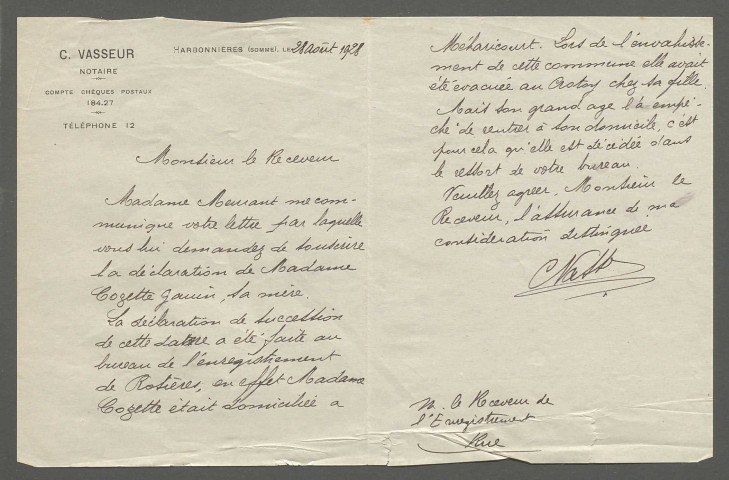 C. VASSEUR
NOTAIRE
COMPTE CHÈQUES POSTAUX
184.27
TÉLÉPHONE 12
HARBONNIÈRES (SOMME), LE 28 août 1928
Monsieur le Receveur
Madame Meurant me com-
munique votre lettre par laquelle
vous lui demandez de souscrire
la déclaration de Madame
Cozette Gauin, sa mère.
La déclaration de succession
de cette dame a été faite au
bureau de l'enregistrement
de Rosières, en effet Madame
Cozette était domiciliée a
Méharicourt. Lors de l'envahisse-
ment de cette commune elle avait
été évacuée au Crotoy chez sa fille.
Mais son grand age l'a empé-
ché de rentrer à son domicile, c'est
pour cela qu'elle est décédée dans
le ressort de votre bureau.
Veuillez agréer, Monsieur le
Receveur, l'assurance de ma
considération distinguée
M. le Receveur de
l'Enregistrement
Rue